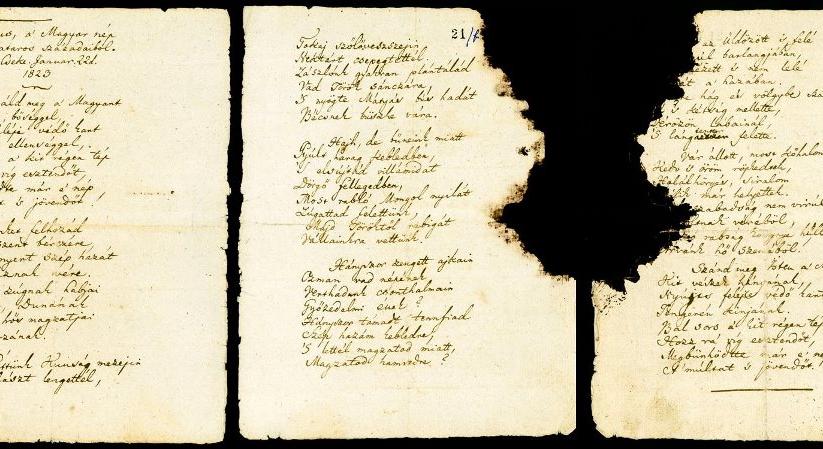 us, a' Magyar nép
ataros századaiból.
Cseke, Januar. 22d.
1823
áld meg a' Magyart
bőséggel,
félje védő kart
ellenséggel;
a' kit régen tép
víg esztendőt,
dte már e' nép
t 's jövendőt!
nket felhozád
szent bérczére,
nyert szép hazát
znak vére.
s zúgnak habjai
Dunának
hős magzatjai
ozának.
ettünk Kunság mezején
lászt lengettél,
21/
Tokaj szőlővesszejin
Nektárt csepegtettél.
Zászlónk gyakran plántálád
Vad Török sánczára,
'S nyögte Mátyás bús hadát
Bécsnek büszke vára.
Hajh, de bűneink miatt
Gyúlt harag kebledben,
'S elsújtád villámidat
Dörgő fellegedben,
Most rabló Mongol nyilát
Zúgattad felettünk,
Majd Töröktől rabigát
Vállainkra vettünk.
Hányszor zengett ajkain
Ozman vad népének
Vert hadunk csonthalmain
Győzedelmi ének!
Hányszor támadt tennfiad
Szép hazám kebledre,
'S lettél magzatod miatt,
Magzatod hamvedre?
az üldözött 's felé
ül barlangjában,
ézett 's nem lelé
át a' hazában.
re hág és völgybe szá
's kétség mellette,
Vérözön lábainál,
'S lángtenger felette.
Vár állott, most kőhalom
Kedv 's öröm röpkedtek,
Halálhörgés, siralom
jlik már helyettek.
zabadság nem virúl
tnak véréből,
rabság könnye hull
rvánk hő szeméből!
Szánd meg Isten a' m
Kit vészek hányának,
Nyújts feléje védő kart
Tengerén kínjának.
Bal sors a' kit régen tép
Hozz rá víg esztendőt,
Megbűnhődte már e' né
A' múltat 's jövendőt!